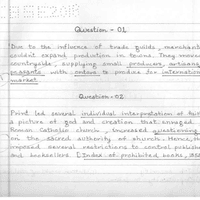 Question - 01
Due to the influence of trade guilds, merchant
couldnt expand production in towns. They moved
countryside, supplying small producers, artisans,
peasants with orders to produce for internation
market
Question - 02
Print led several individual interpretation of
a picture of god and creation that enraged
Roman Catholic church, increased questioning
on the sacred authority of church. Hence,
imposed several restrictions to control publish
and booksellers. Index of prohibited books,